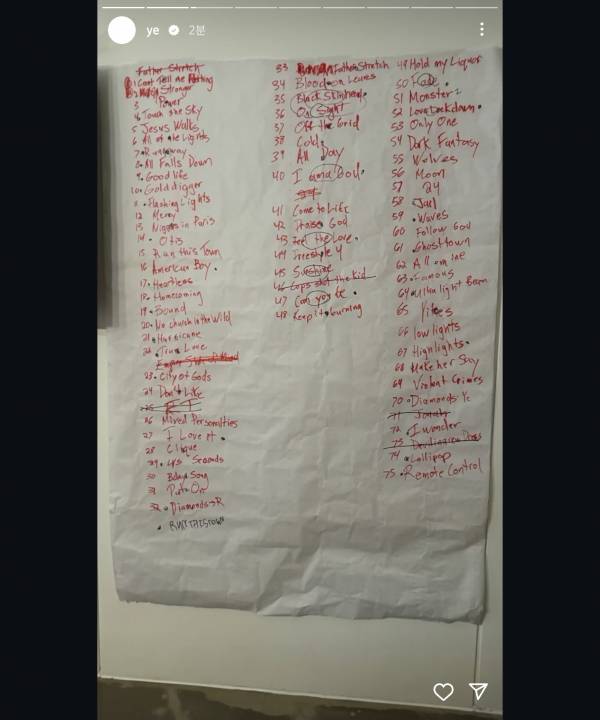 ye 2분
Father Stretch
1 Cant Tell me Nothing
2 Stronger
3 Power
4 Touch the Sky
5 Jesus Walks
6 All of the Lights
7 Runaway
8 All Falls Down
9 Good life
10 Golddigger
11 Flashing Lights
12 Mercy
13 Niggas in Paris
14 Otis
15 Run this Town
16 American Boy
17 Heartless
18 Homecoming
19 Bound
20 No church in the Wild
21 Hurricane
22 True Love
Empire State of Mind
23 City of Gods
24 Don't Like
25
26 Mixed Personalties
27 I Love it
28 Clique
29 Seconds
30 Bday Song
31 Put On
32 Diamonds R
RUNTHISTOWN
33 Father Stretch
34 Blood on Leaves
35 Black Skinhead
36 On Sight
37 Off the Grid
38 Cold
39 All Day
40 I am a God
41 Come to Life
42 Praise God
43 Feel the Love
44 Freestyle 4
45 Sunshine
46 Cops shot the kid
47 Can you be
48 Keep it burning
49 Hold my Liquor
50 Fade
51 Monster
52 Love Lockdown
53 Only One
54 Dark Fantasy
55 Wolves
56 Moon
57 24
58 Jail
59 Waves
60 Follow God
61 Ghost town
62 All mine
63 Famous
64 Ultra light Beam
65 Yikes
66 low lights
67 Highlights
68 Make her Say
69 Violent Crimes
70 Diamonds Ye
71 Jonah
72 I wonder
73 Devil in a new Dress
74 Lollipop
75 Remote Control